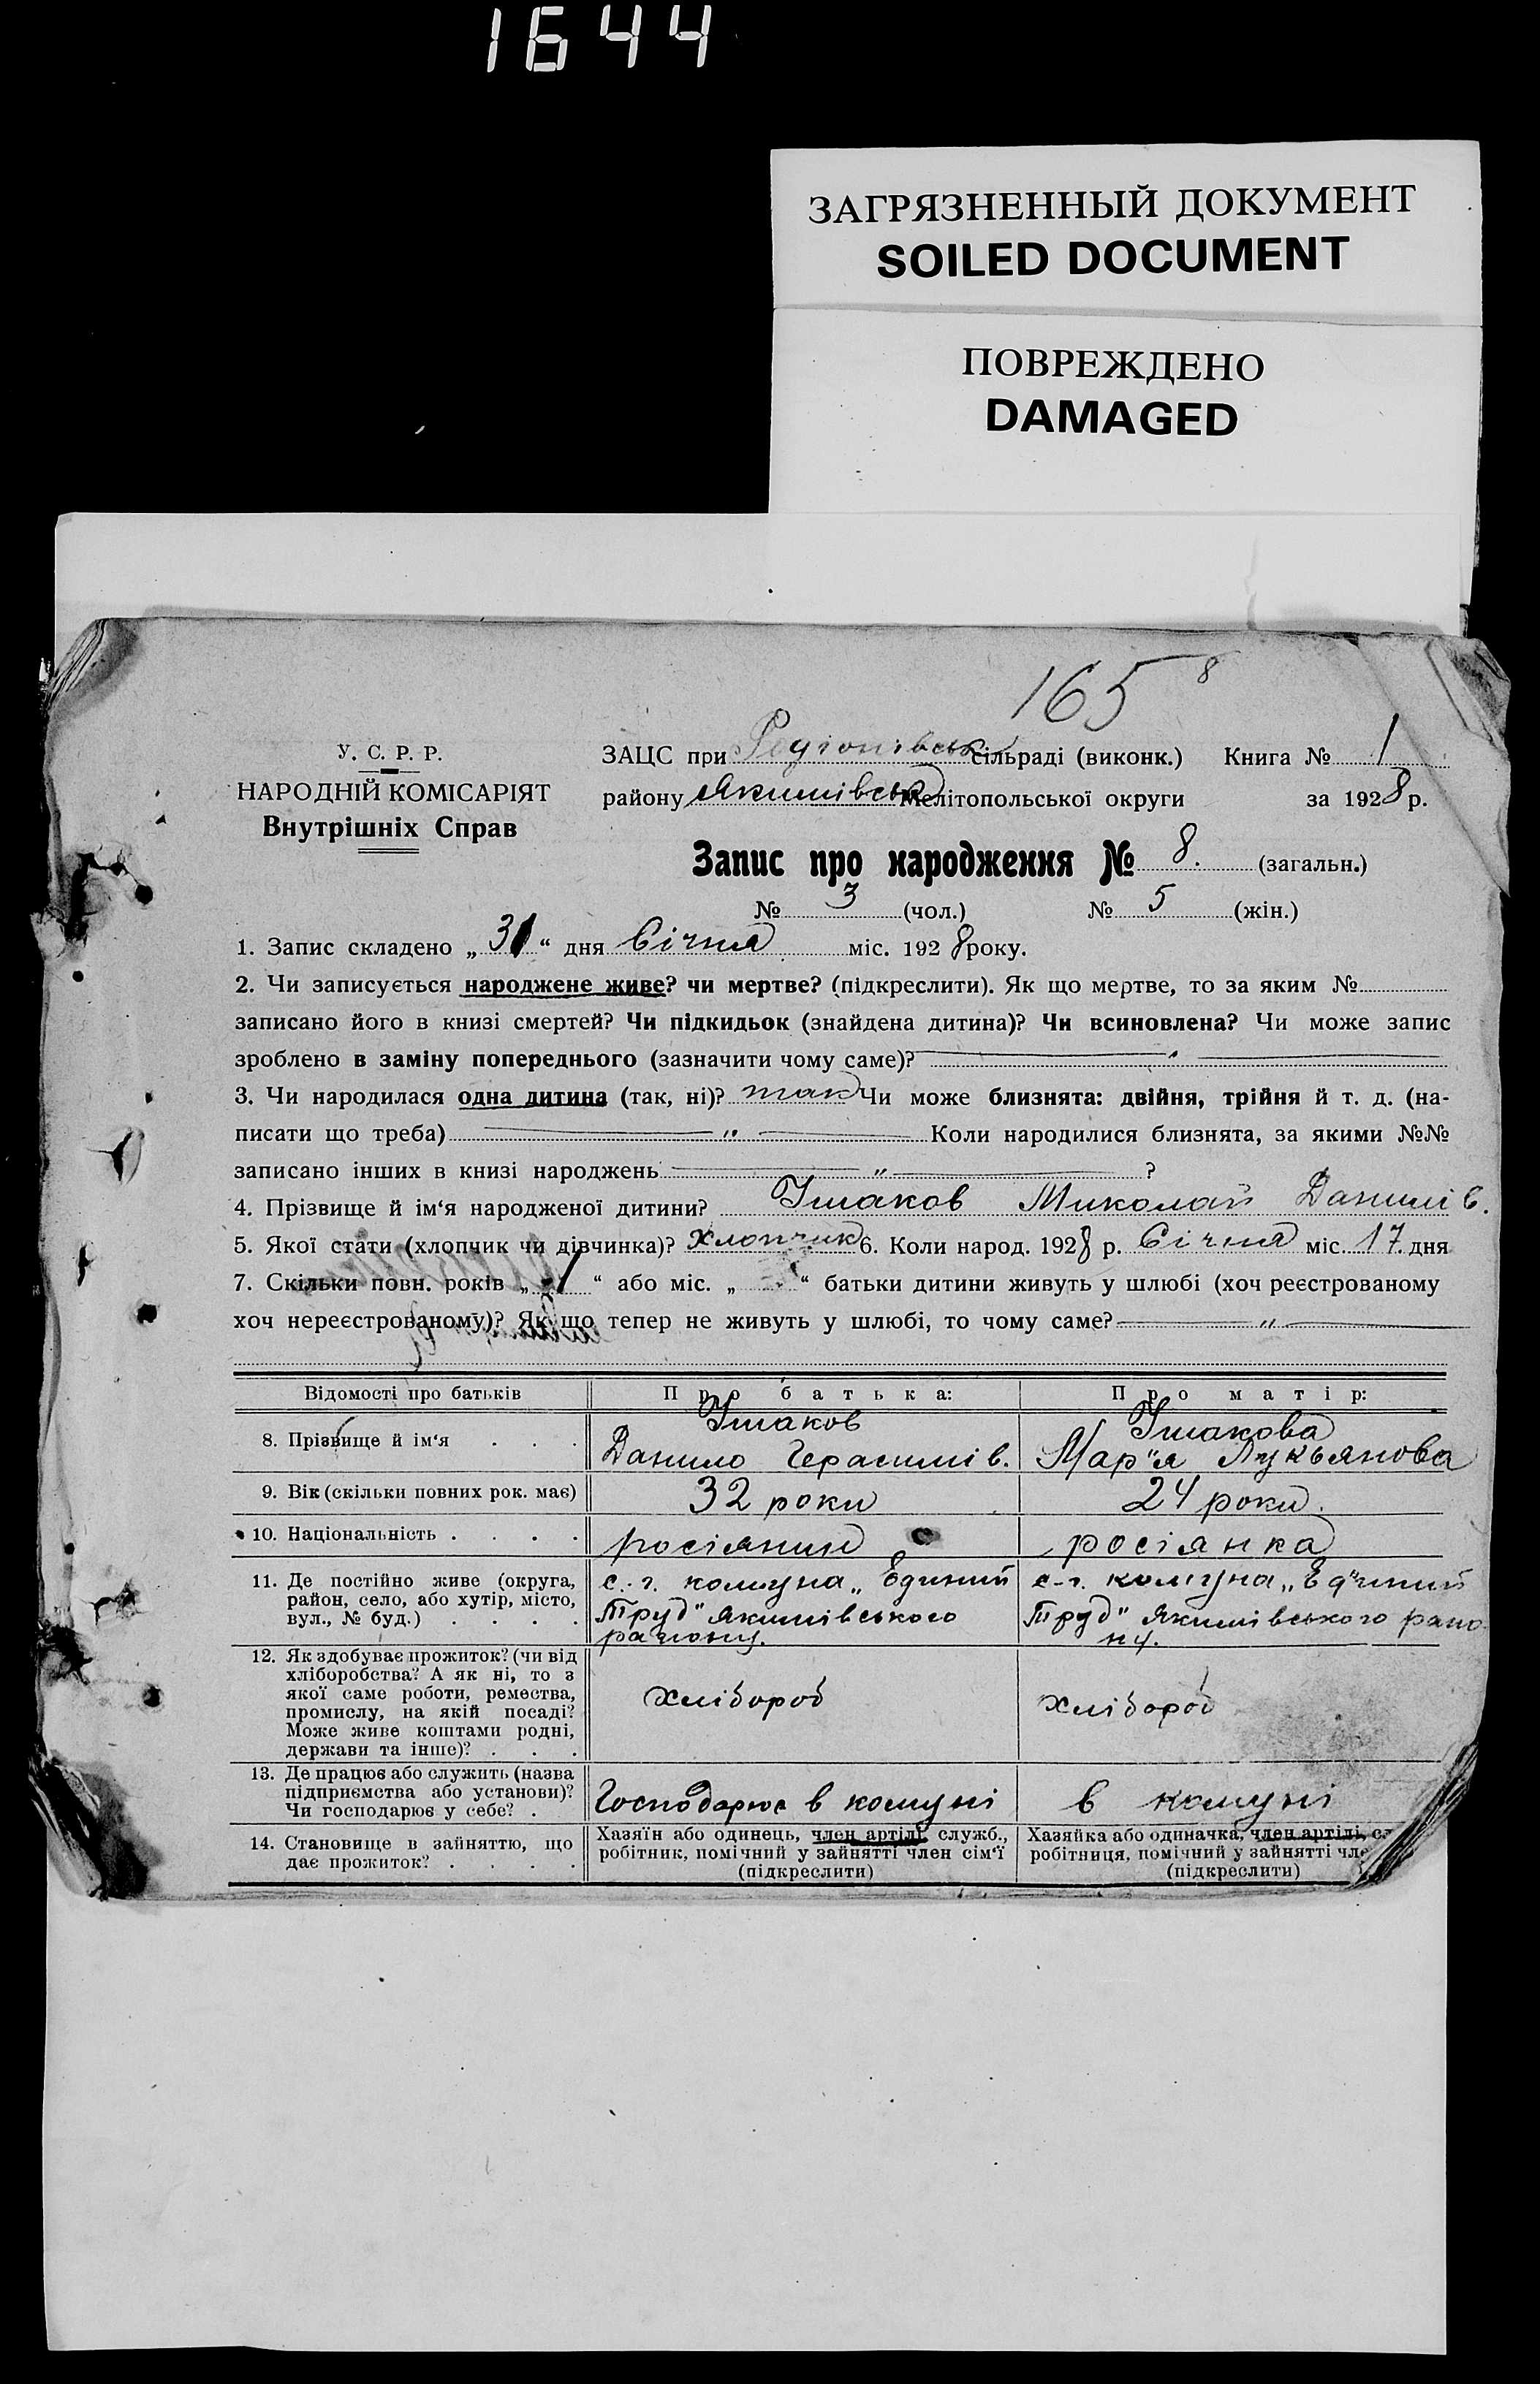 1644
ЗАГРЯЗНЕННЫЙ ДОКУМЕНТ
SOILED DOCUMENT
ПОВРЕЖДЕНО
DAMAGED
165 8
У. С. Р. Р.
НАРОДНІЙ КОМІСАРІЯТ
Внутрішніх Справ
ЗАЦС при сільраді (виконк.) Книга № 1
району Якимівськ Мелітопольської округи за 1928 р.
Запис про народження № 8. (загальн.)
№ 3 (чол.) № 5 (жін.)
1. Запис складено „ 31 “ дня Січня міс. 1928 року.
2. Чи записується народжене живе? чи мертве? (підкреслити). Як що мертве, то за яким №
записано його в книзі смертей? Чи підкидьок (знайдена дитина)? Чи всиновлена? Чи може запис
зроблено в заміну попереднього (зазначити чому саме)?
3. Чи народилася одна дитина (так, ні)? так Чи може близнята: двійня, трійня й т. д. (на-
писати що треба) — „ — Коли народилися близнята, за якими №№
записано інших в книзі народжень — „ — ?
4. Прізвище й ім‘я народженої дитини? Ушаков Миколай Данилів.
5. Якої стати (хлопчик чи дівчинка)? Хлопчик 6. Коли народ. 1928 р. Січня міс. 17. дня
7. Скільки повн. років „ 1 “ або міс. „ “ батьки дитини живуть у шлюбі (хоч реєстрованому
хоч нереєстрованому)? Як що тепер не живуть у шлюбі, то чому саме? — „ —
Відомості про батьків Про батька: Про матір:
8. Прізвище й ім‘я . . . Ушаков Данило Герасимів. Ушакова Мар"я Лукьянова
9. Вік (скільки повних рок. має) 32 роки 24 роки.
10. Національність . . . . росіянин росіянка
11. Де постійно живе (округа,
район, село, або хутір, місто,
вул., № буд.) . . . .
с.-г. комуна „Єдиний
Труд" Якимівського
району.
с-г. комуна „Єдиний
Труд" Якимівського райо
ну.
12. Як здобуває прожиток? (чи від
хліборобства? А як ні, то з
якої саме роботи, ремества,
промислу, на якій посаді?
Може живе коштами родні,
держави та інше)? . . .
хлібороб хлібороб
13. Де працює або служить (назва
підприємства або установи)?
Чи господарює у себе? .
Господарює в комуні в комуні
14. Становище в зайняттю, що
дає прожиток? . . . .
Хазяїн або одинець, член артілі, служб.,
робітник, помічний у зайнятті член сім‘ї
(підкреслити)
Хазяйка або одиначка, член артілі,
робітниця, помічний у зайнятті
(підкреслити)